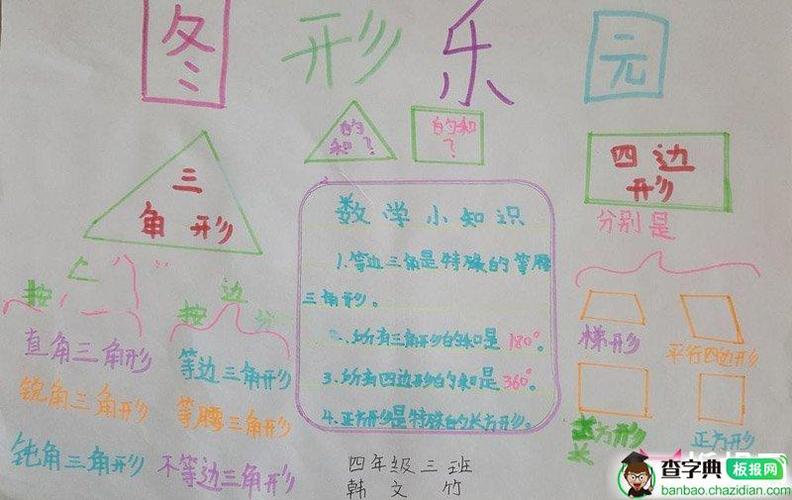 图形乐园
的和？
的和？
三
角形
四边
形
分别是
数学小知识
1.等边三角是特殊的等腰
三角形。
2.所有三角形的和是180°。
3.所有四边形的和是360°。
4.正方形是特殊的长方形。
按
按边分
直角三角形
锐角三角形
钝角三角形
等边三角形
等腰三角形
不等边三角形
梯形
平行四边形
长方形
正方形
四年级三班
韩文竹
查字典板报网
banbao.chazidian.com